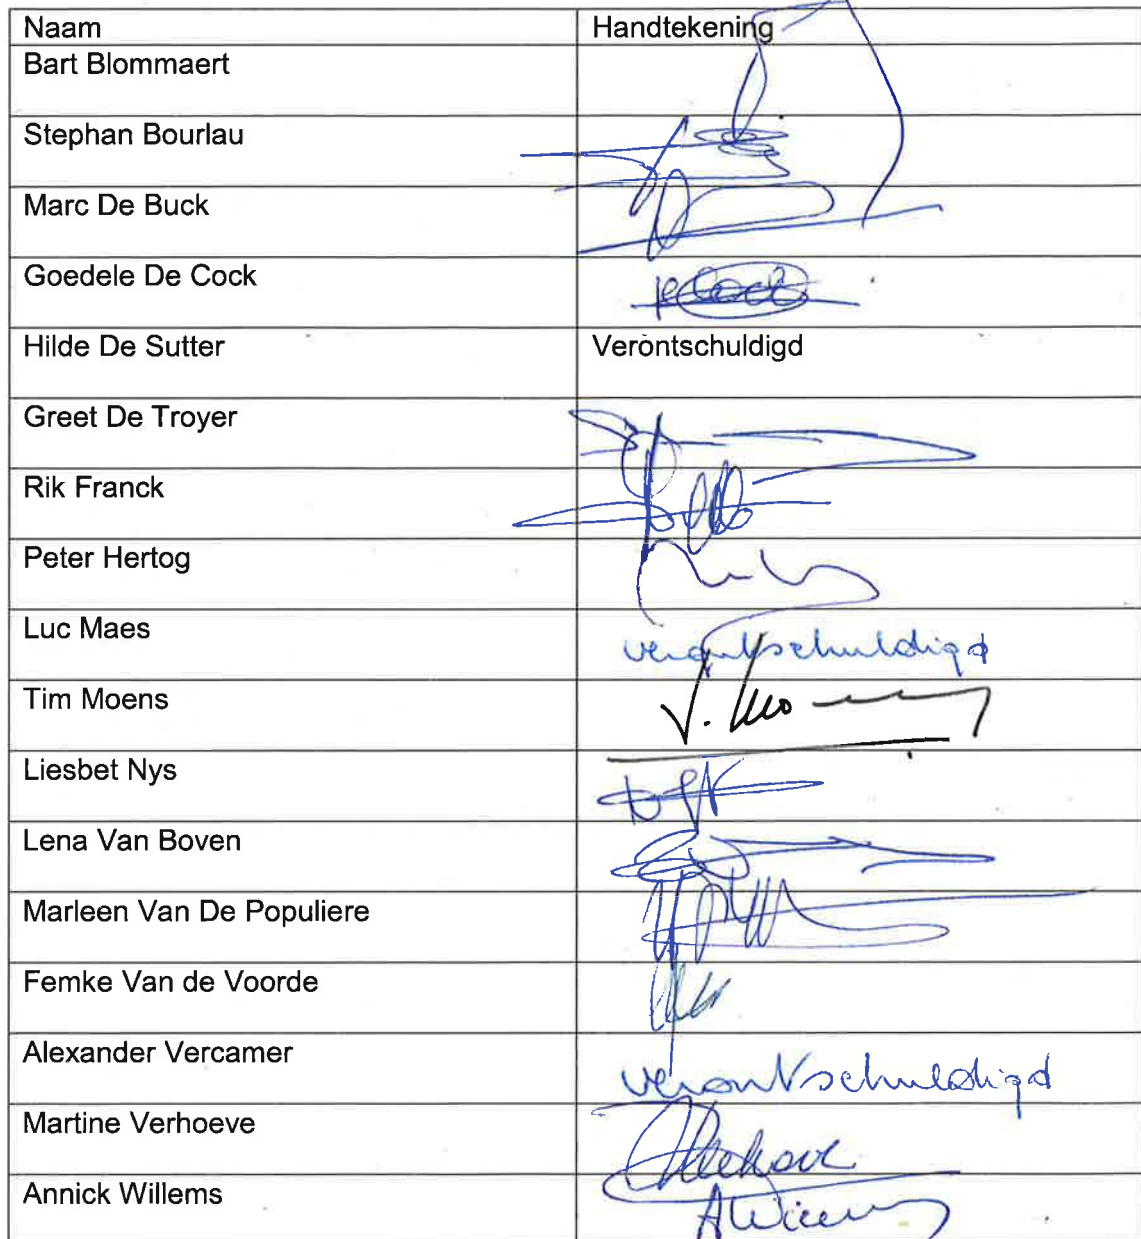 Naam Handtekening
Bart Blommaert
Stephan Bourlau
Marc De Buck
Goedele De Cock
Hilde De Sutter Verontschuldigd
Greet De Troyer
Rik Franck
Peter Hertog
Luc Maes verontschuldigd
Tim Moens
Liesbet Nys
Lena Van Boven
Marleen Van De Populiere
Femke Van de Voorde
Alexander Vercamer verontschuldigd
Martine Verhoeve
Annick Willems